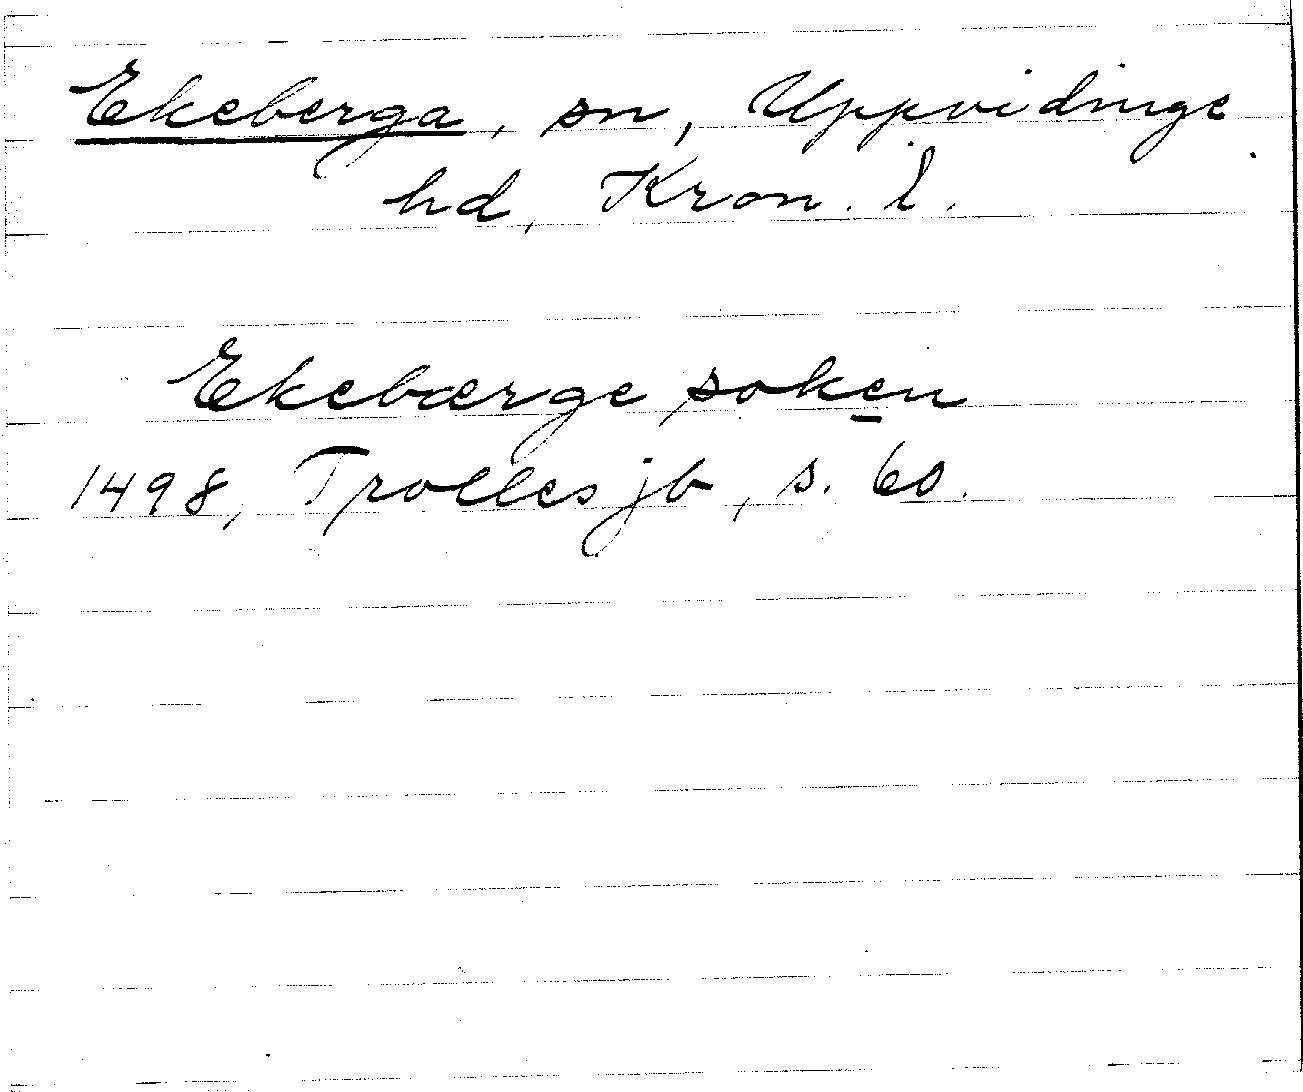 Ekeberga, sn, Uppvidinge
hd, Kron. l.
Ekebærge soken
1498, Trolles jb, s. 60.